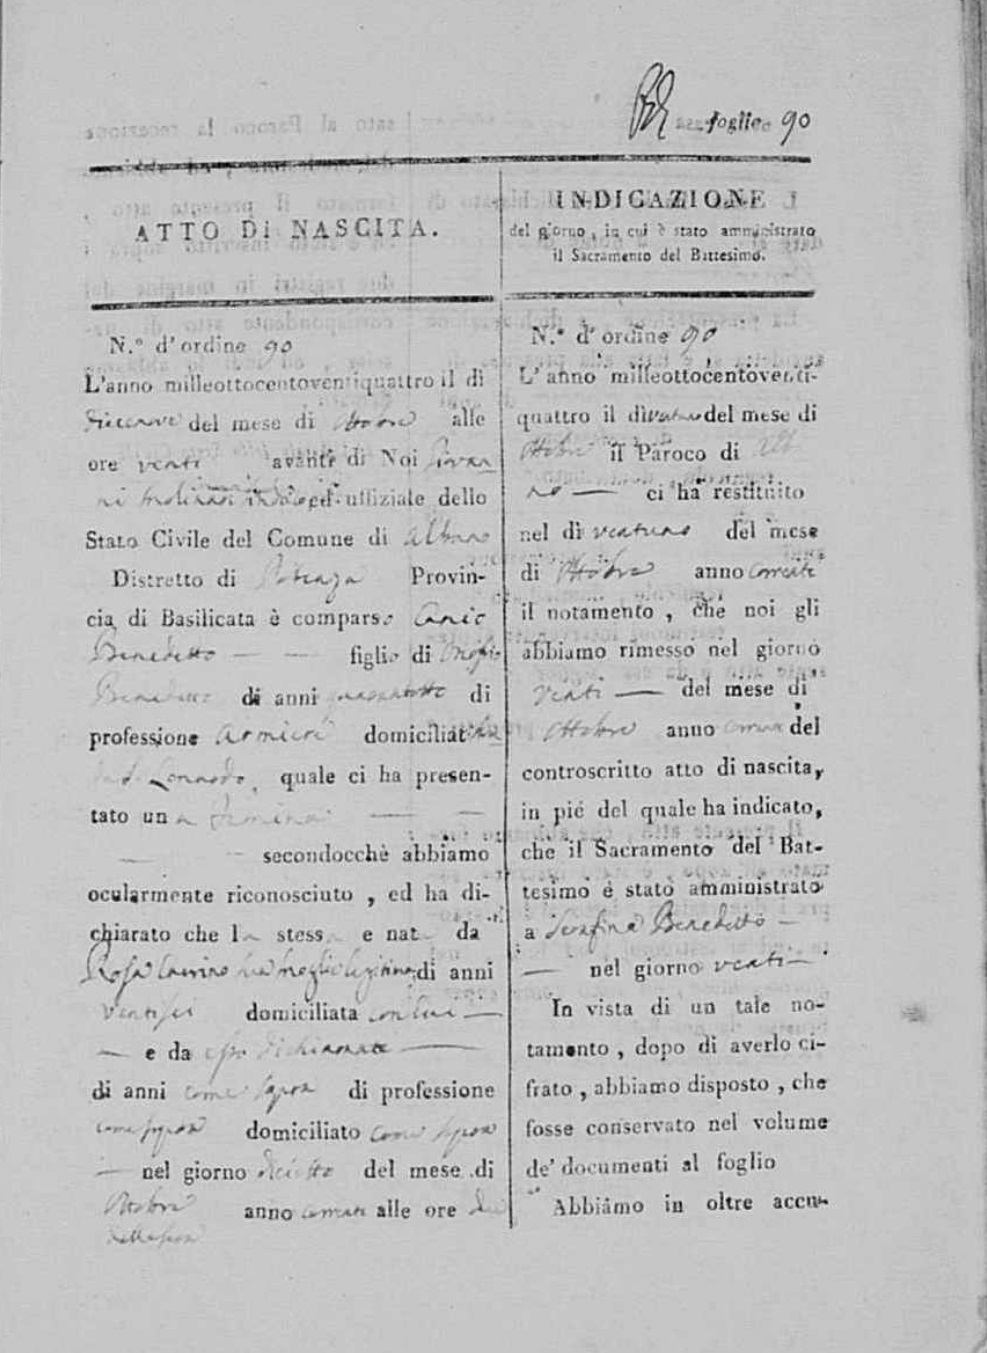 foglio 90
ATTO DI NASCITA.
N.° d'ordine 90
L'anno milleottocentoventiquattro il di
diecenove del mese di Ottobre alle
ore venti avanti di Noi Giovan
ni Molinari ed uffiziale dello
Stato Civile del Comune di Albano
Distretto di Potenza Provin-
cia di Basilicata è comparso Canio
Benedetto figlio di Onofrio
Benedetto di anni quarantotto di
professione domiciliato
quale ci ha presen-
tato una femina
secondocchè abbiamo
ocularmente riconosciuto, ed ha di-
chiarato che la stessa e nata da
Rosa sua moglie legitima di anni
ventisei domiciliata con lui
e da esso dichiarante
di anni come sopra di professione
come sopra domiciliato come sopra
nel giorno dieciotto del mese di
Ottobre anno corrente alle ore
INDICAZIONE
del giorno, in cui è stato amministrato
il Sacramento del Battesimo.
N.° d'ordine 90
L'anno milleottocentoventi-
quattro il di ventuno del mese di
Ottobre il Paroco di Alba
no ci ha restituito
nel di ventuno del mese
di Ottobre anno corrente
il notamento, che noi gli
abbiamo rimesso nel giorno
venti del mese di
Ottobre anno corrente del
controscritto atto di nascita,
in piè del quale ha indicato,
che il Sacramento del Bat-
tesimo é stato amministrato
a Serafina Benedetto
nel giorno venti
In vista di un tale no-
tamento, dopo di averlo ci-
frato, abbiamo disposto, che
fosse conservato nel volume
de' documenti al foglio
Abbiamo in oltre accu-